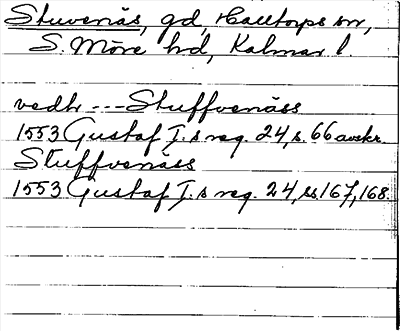 Stuvenäs, gd, Halltorps sn,
S. Möre hd, Kalmar l.
vedh --- Stuffvenäss
1553 Gustaf I:s reg. 24, s. 66 avskr.
Stuffvenäss
1553 Gustaf I:s reg. 24, ss. 167, 168.